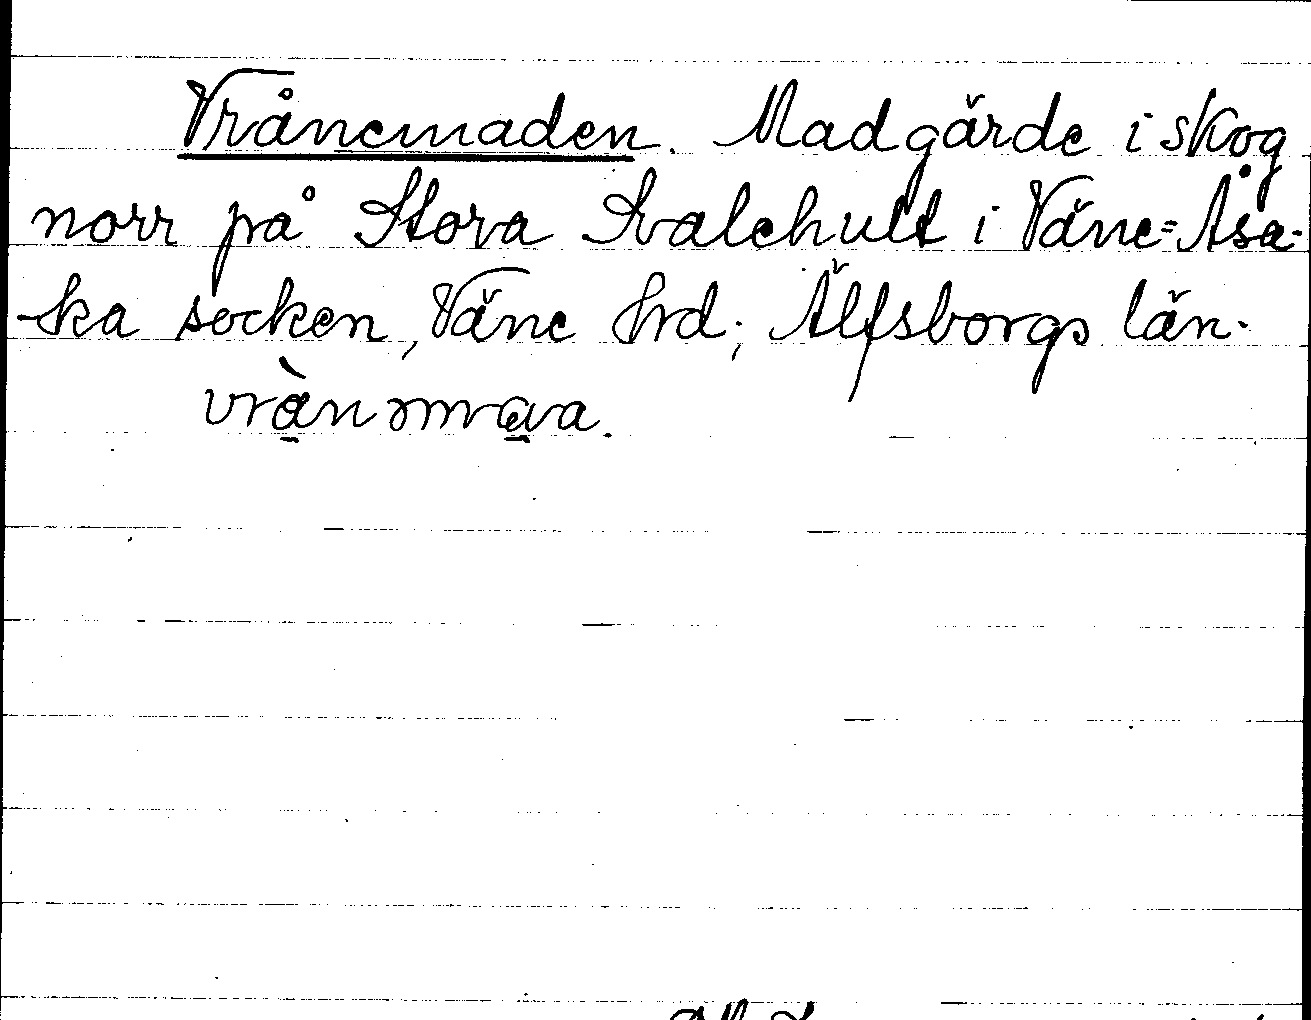 Vrånemaden. Madgärde i skog
norr på Stora Kvalehult i Väne=Åsa-
ka socken, Väne hrd; Älfsborgs län.